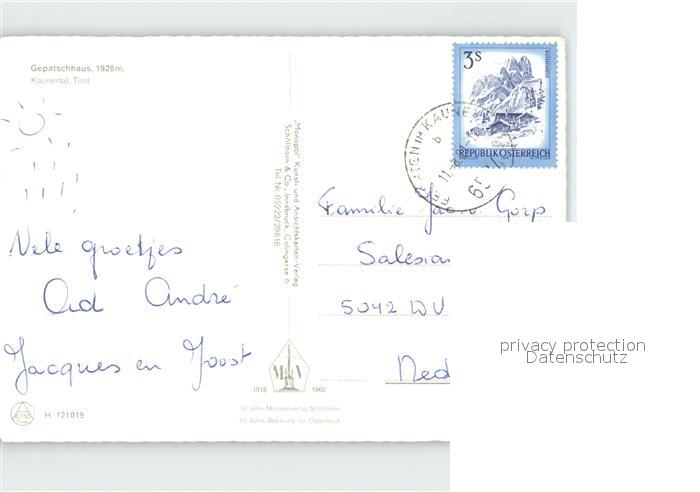 Gepatschhaus, 1928 m.
Kaunertal, Tirol
Vele groetjes
Ad André
Jacques en Joost
H 121019
„Monopol" Kunst- und Ansichtskarten-Verlag
Schöllhorn & Co., Innsbruck, Colingasse 6
Tel. Nr. 05222/29816
1918 1968
50 Jahre Monopolverlag Schöllhorn
50 Jahre Werbung für Österreich
3 S
REPUBLIK ÖSTERREICH
IM KAUNE
Familie v. Gorp
Salesian
5042 DV
Ned
privacy protection
Datenschutz